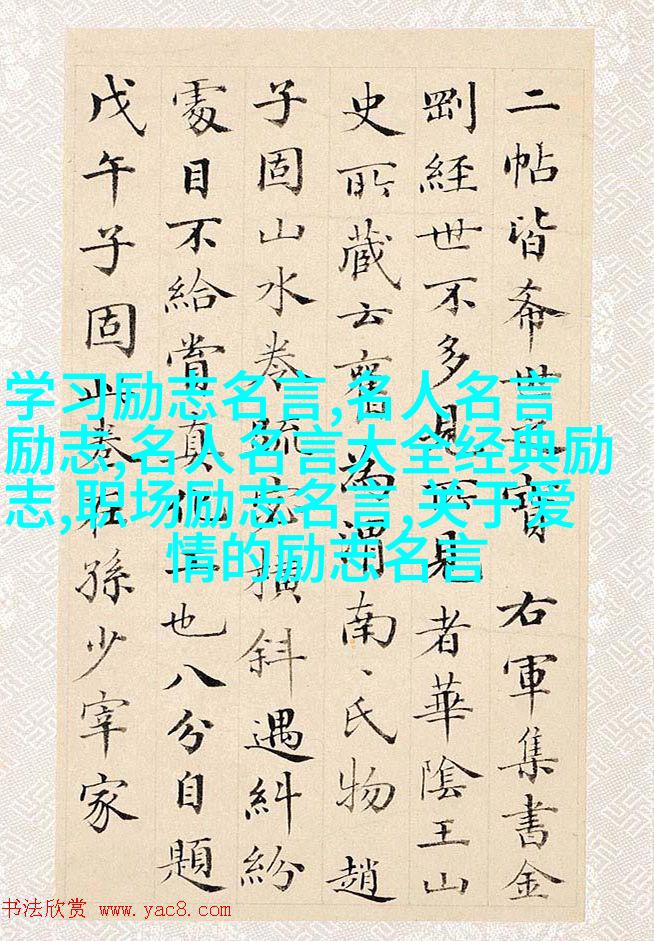 二帖皆希世之寳 右軍集書金
剛經世不多見所見者華陰王山
史所蔵云舊為渭南、氏物趙
子固山水卷疏密横斜遇糾紛
處目不給賞真也八分自題
戊午子固此卷在孫少宰家
学习励志名言,名人名言
励志,名人名言大全经典励
志,职场励志名言,关于爱
情的励志名言
书法欣赏 www.yac8.com